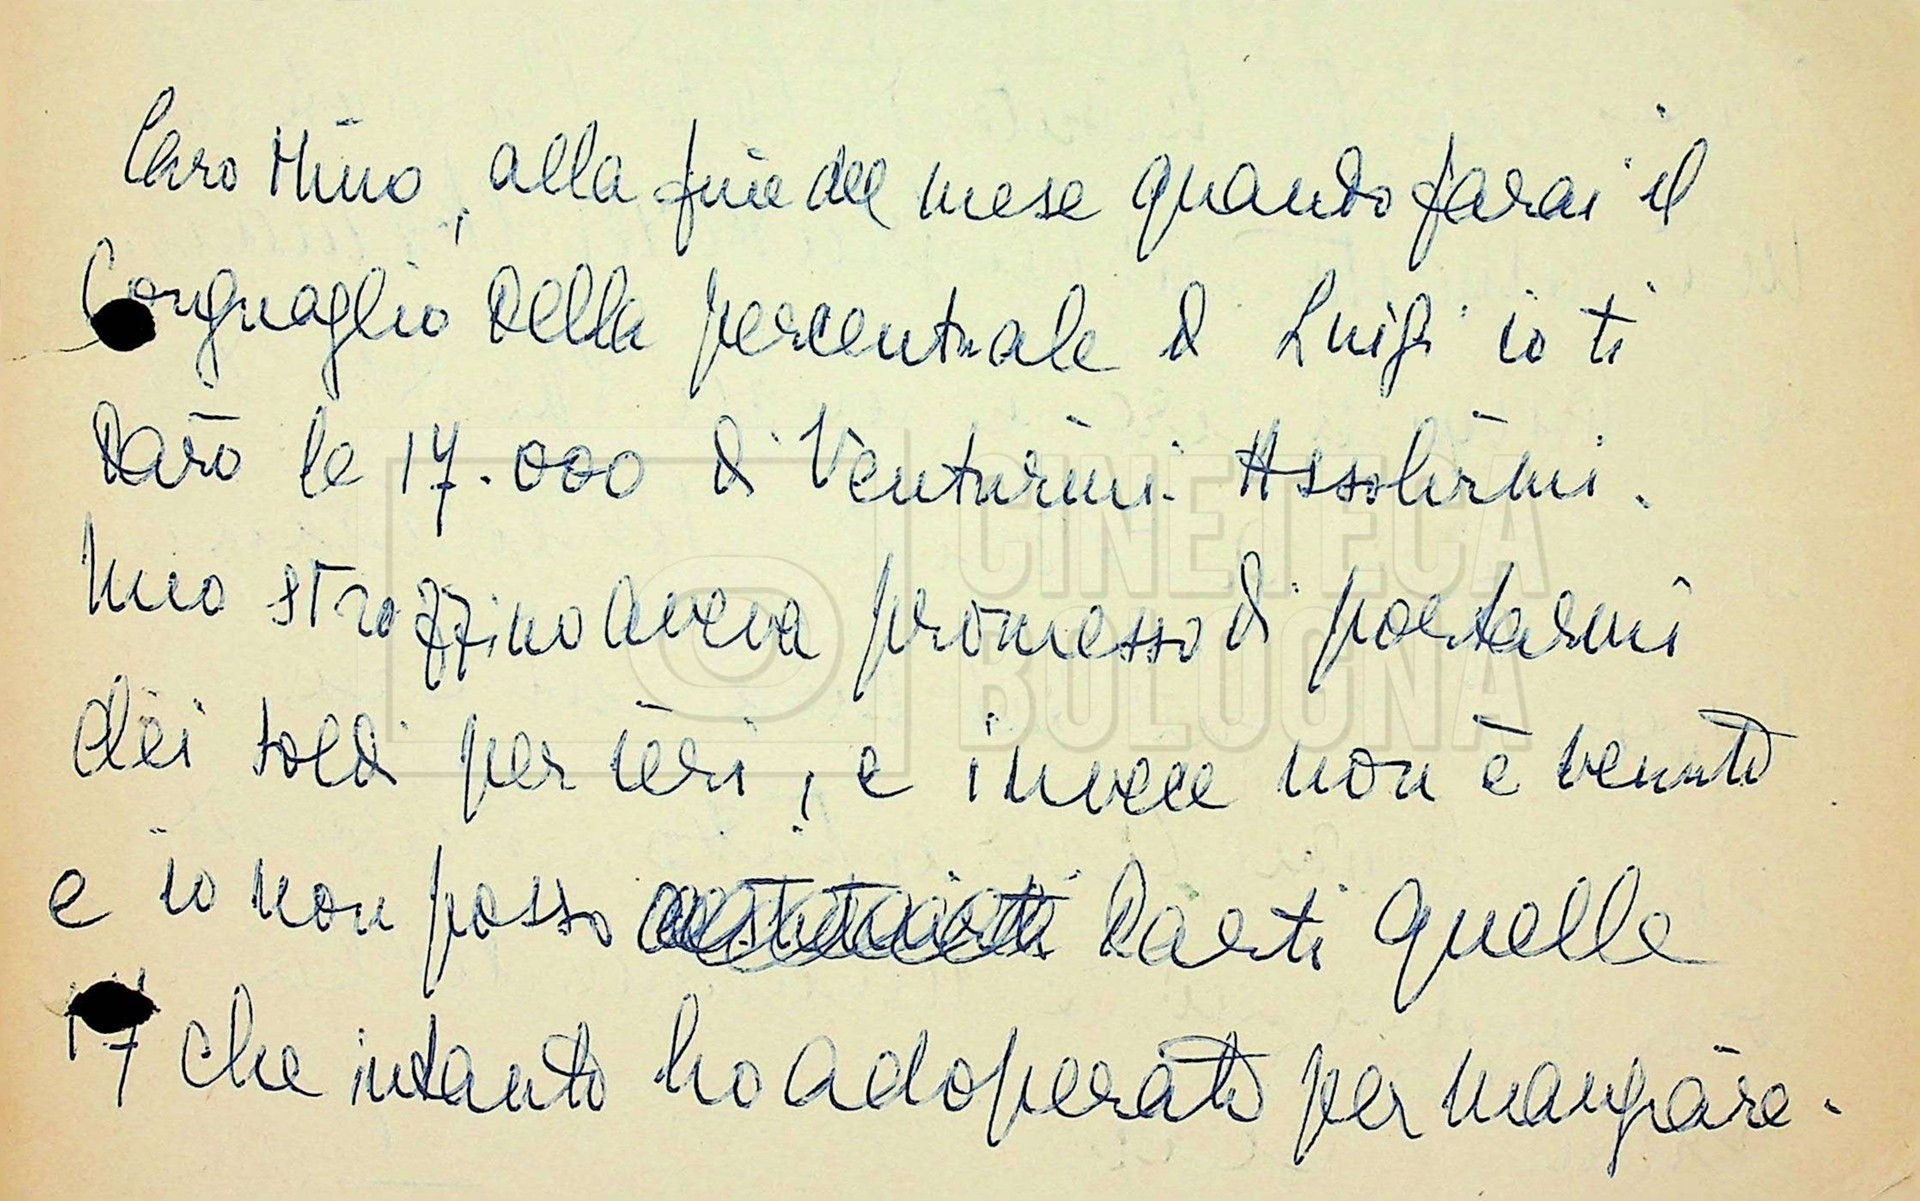 Caro Mino, alla fine del mese quando farai il
Conguaglio della percentuale di Luigi io ti
darò le 17.000 di Venturini. Assolvimi.
Uno strozzino aveva promesso di portarmi
dei soldi per ieri, e invece non è venuto
e io non posso darti quelle
17 che intanto ho adoperato per mangiare.
CINETECA
BOLOGNA